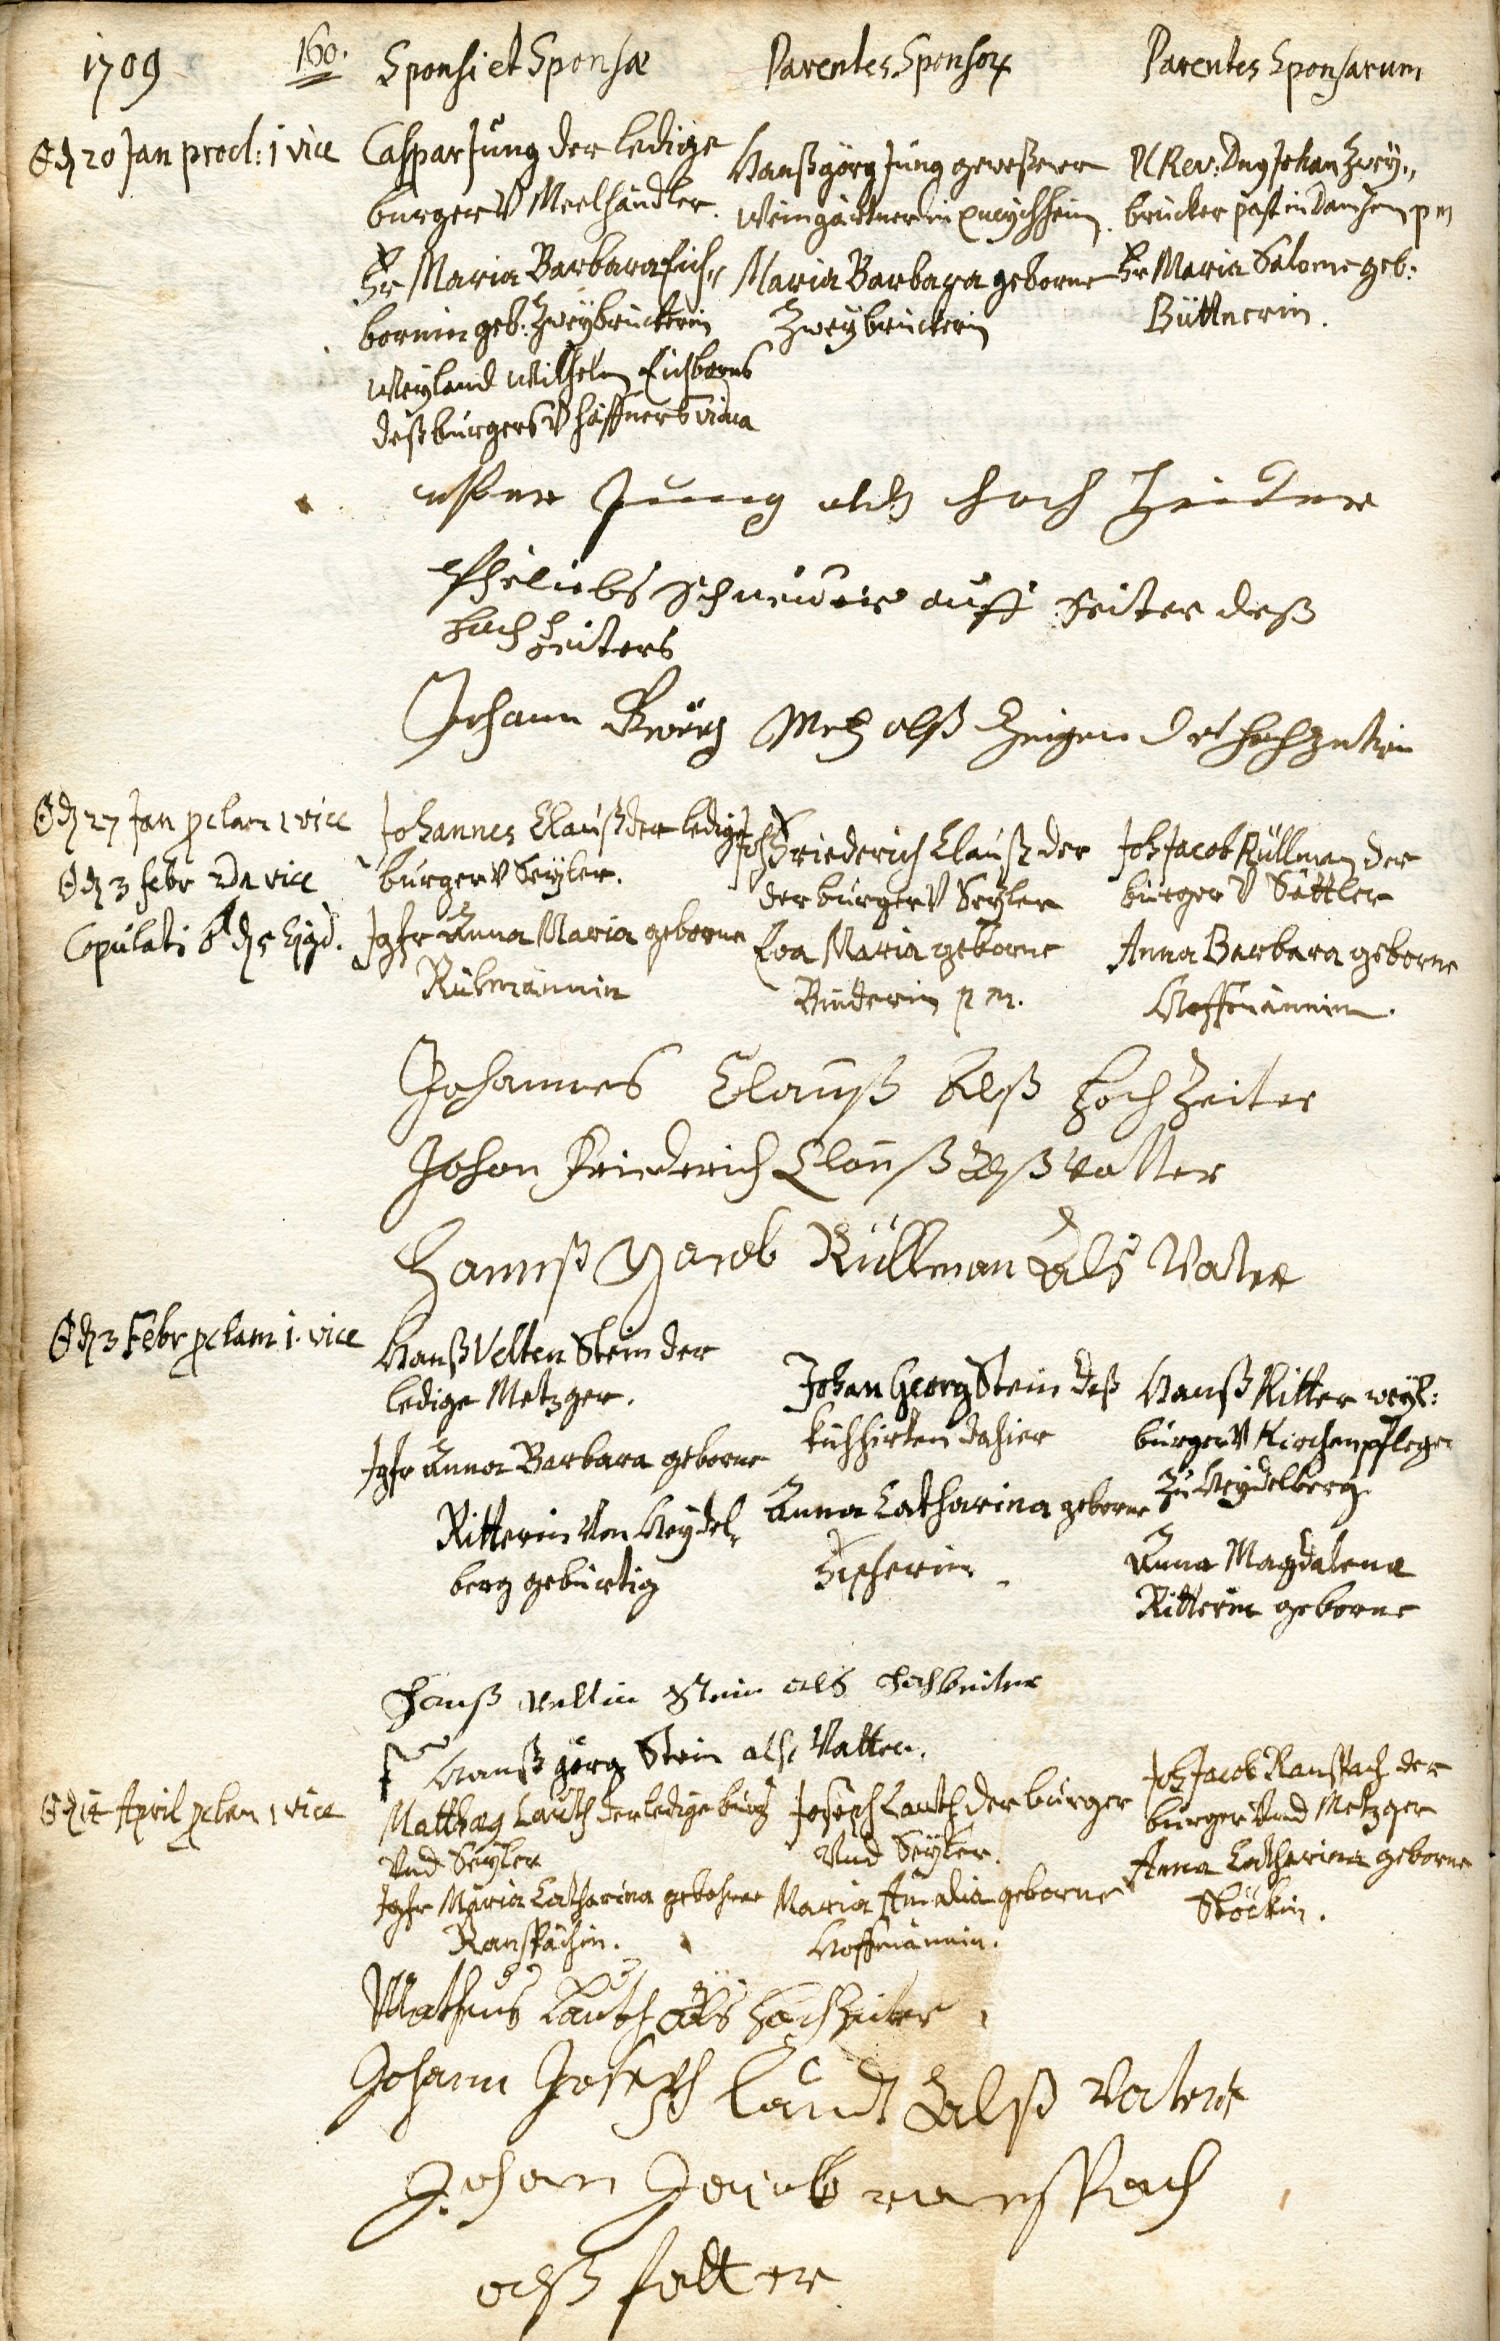 1709
160.
Sponsi et Sponsæ
Parentes Sponsor
Parentes Sponsarum
20 Jan procl: 1 vice
Caspar Jung der ledige
burger v Meelhändler.
Fr Maria Barbara Eich„
bornin geb: Zweybrückerin
Weyland Wilhelm Eichborns
deß burgers v haffners vidua
Hanß görg Jung geweßener
Weingärtner in
Maria Barbara geborne
Zweybrückerin
Pl Rev: Dng Johan Zwey„
brücker past in p m
Fr Maria Salome geb:
Büttnerin.
Jung alß hoch Zeiter
Pheliebs Schneider auff seiten deß
hoch Zeiters
Johann Metz alß Zeugen der hochzeiterin
27 Jan pclam 1 vice
3 febr 2da vice
Copulati d 5 ejgd.
Johannes Clauß der ledige
burger v Seyler.
Jgfr Anna Maria geborne
Rülmännin
Joh Friederich Clauß der
der burger v Seyler
Eva Maria geborne
Binderin p m.
Joh Jacob Rüllman der
burger v Sattler
Anna Barbara geborne
Hoffmännin.
Johannes Clauß alß hoch Zeiter
Johan Friederich Clauß alß vatter
Hannß Jacob Rüllman als Vater
3 Febr pclam 1. vice
Hanß Velten Stein der
ledige Metzger.
Jgfr Anna Barbara geborne
Ritterin von Heydel„
berg gebürtig
Johan Georg Stein deß
kuhhirten dahier
Anna Catharina geborne
Hanß Ritter weyl:
burger v Kirchenpfleger
zu Heydelberg.
Anna Magdalena
Ritterin geborne
Hanß Velltin Stein als hochzeiter
Hanß görg Stein alß Vatter.
14 April pclam 1 vice
Matthæg Lauth der ledige burg
und Seyler
Jgfr Maria Catharina gebohrne
Ranspächin.
Joseph Lauth der burger
und Seyler.
Maria Amalia geborne
Hoffmännin.
Joh Jacob Ranspach der
burger und Metzger
Anna Catharina geborne
Stöckin.
Matheus Lauth als hochzeiter
Johann Joseph Laudt alß vater
Johann Jacob ranspach
alß fatter